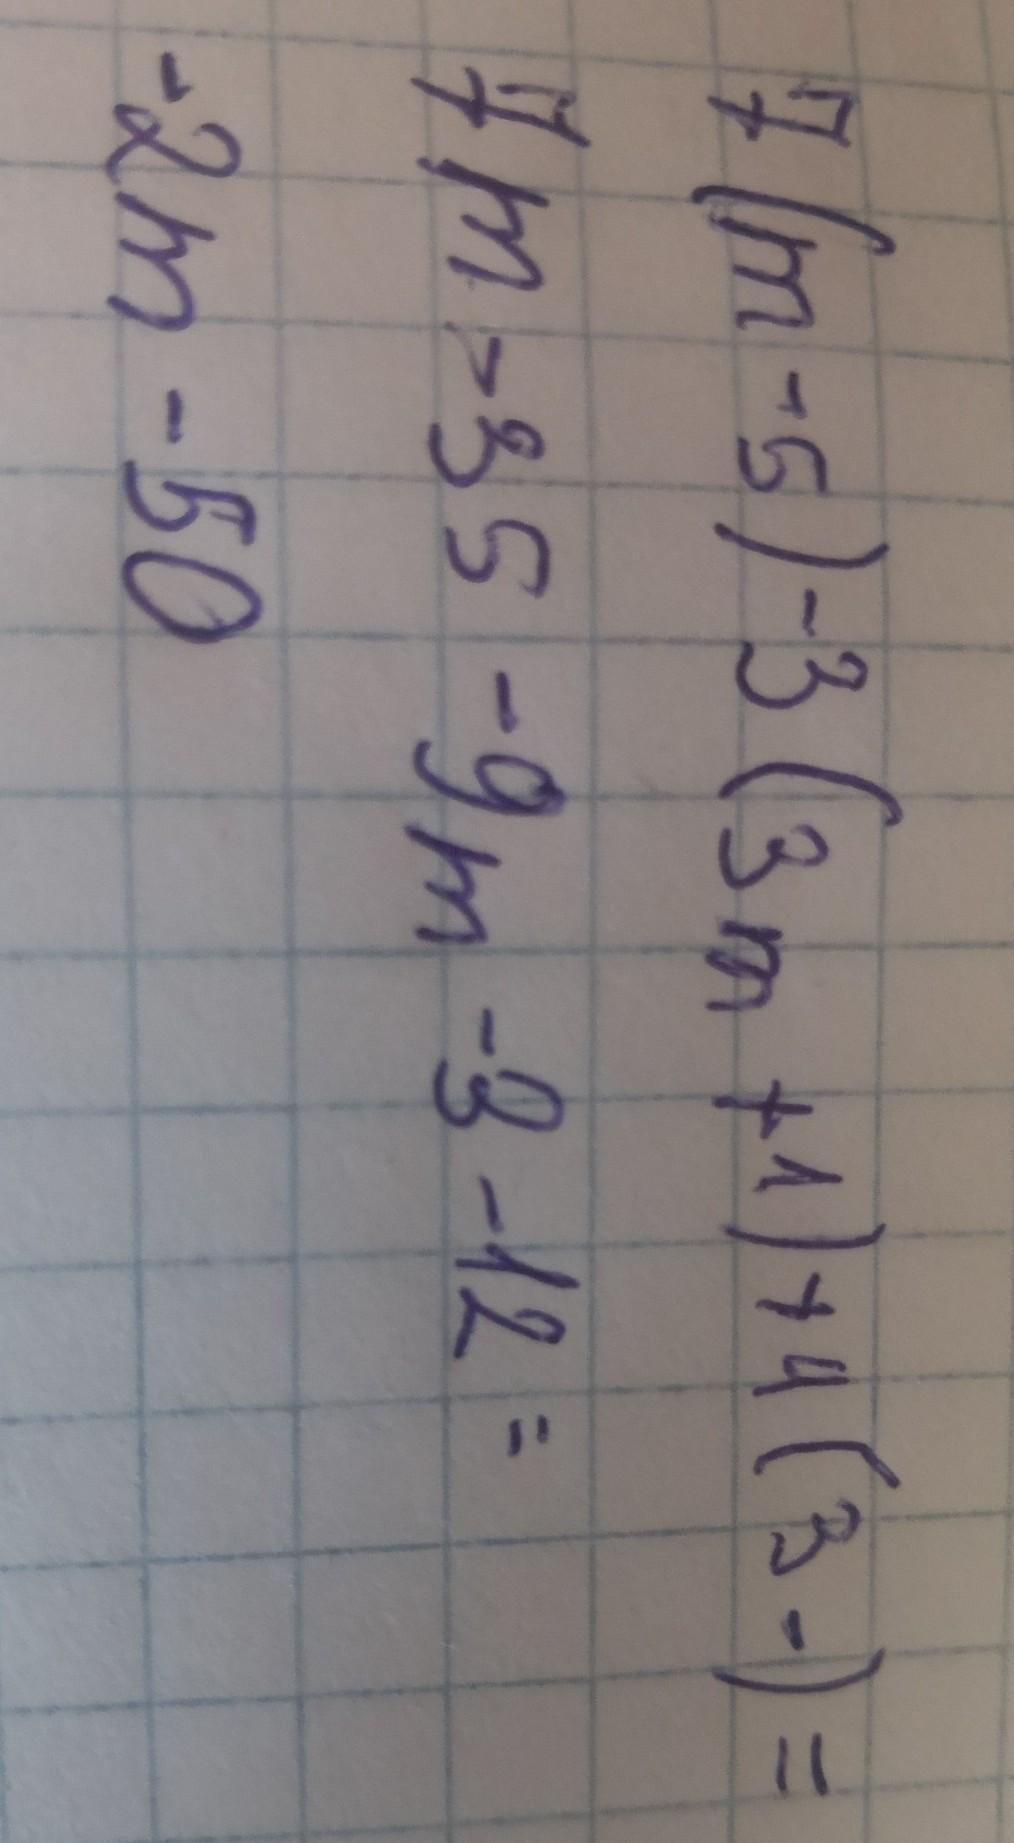 7(m-5)-3(3m+1)+4(3-)=
7m-35-9m-3-12=
-2m-50